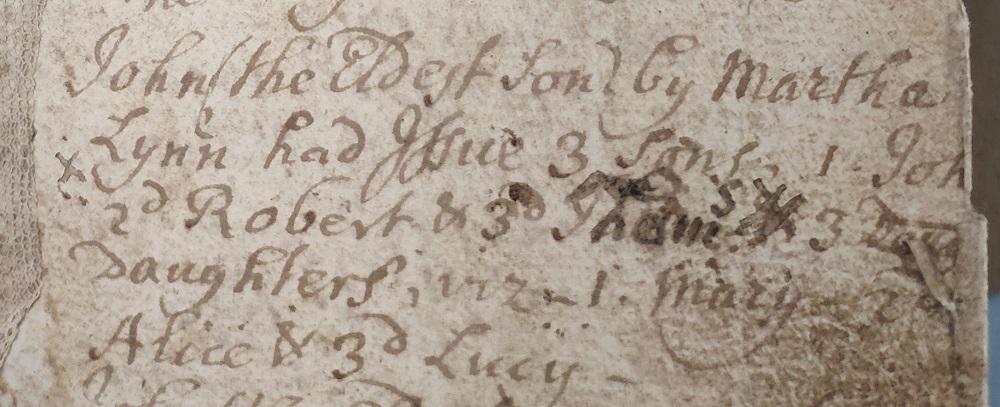 John (the Eldest Son) by Martha
Lynn had Issue 3 Sons, 1. Joh
x 2d Robert & 3d Thom s & 3
Daughters, viz. 1. Mary 2d
Alice & 3d Lucy